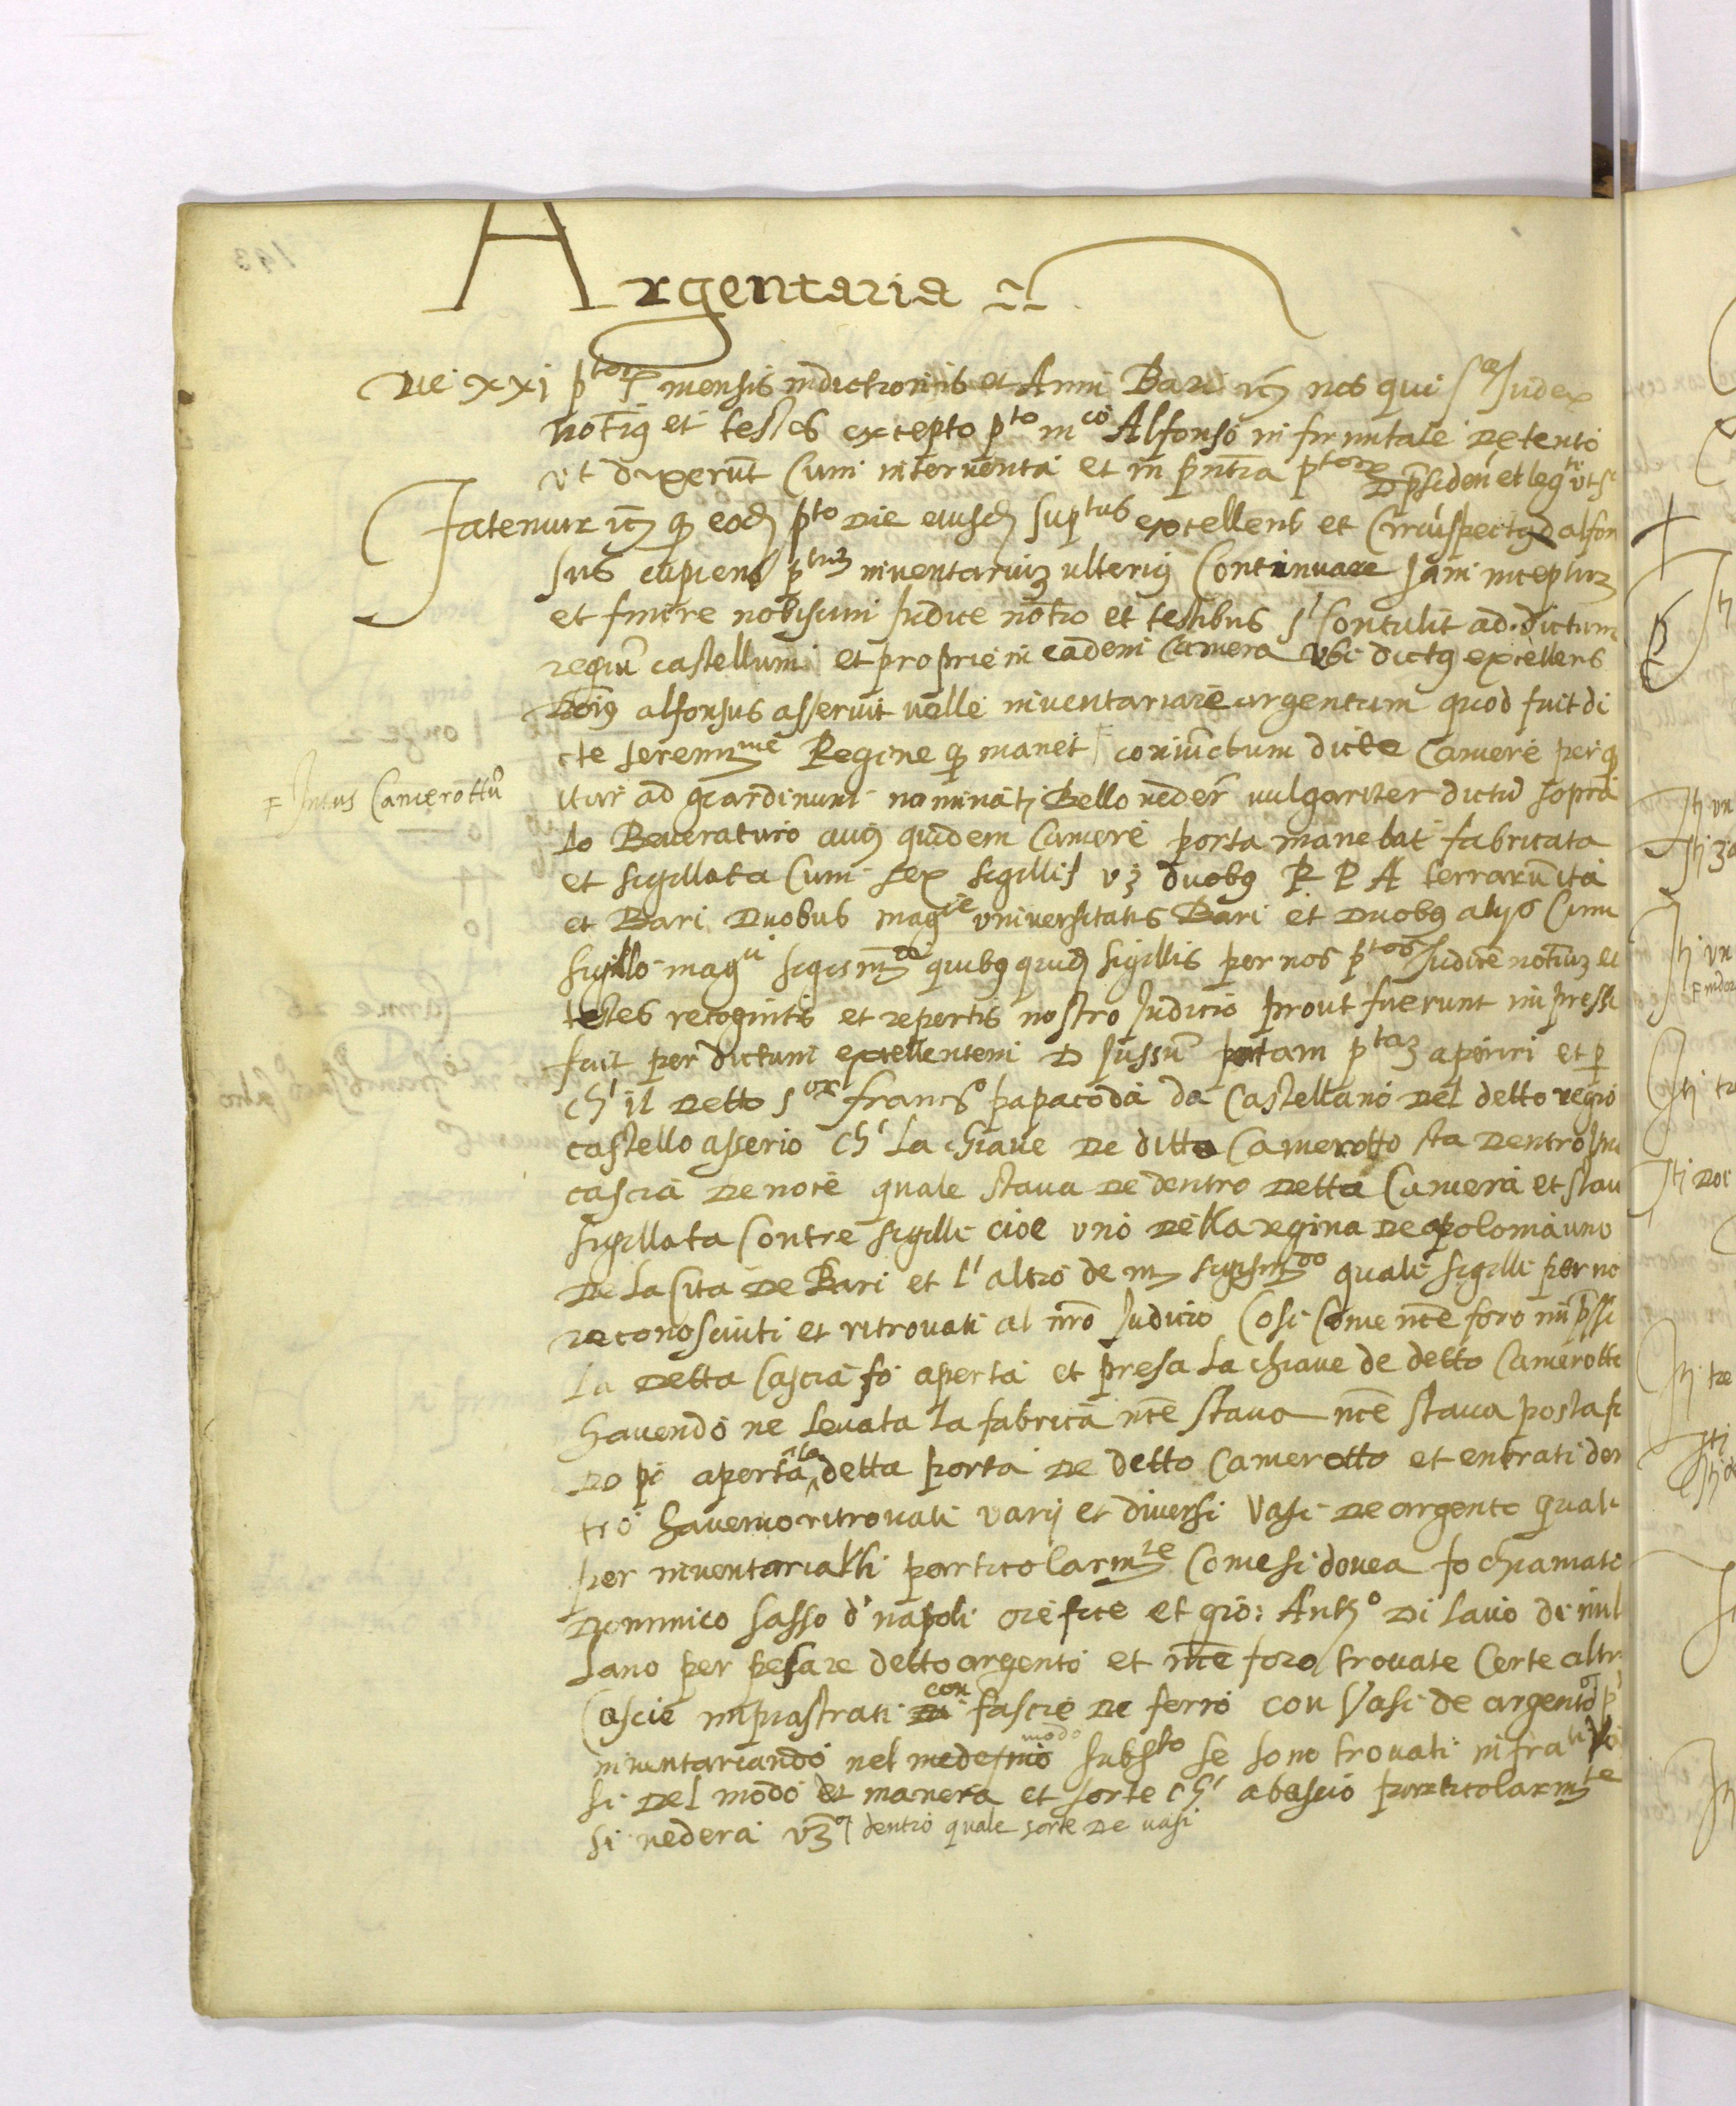 Argentaria
Die xxj ptor mensis indictionis et Anni Bari nos qui sa Judex
notis et testes excepto pto mco Alfonso infirmitate detento
ut dixerunt cum interventa et in pntia ptor D psiden et leg ut s
Fatemur q eod pto die eiusd suptus excellens et Circuspectus d alfon
sus cupiens ptum inventarium ulterius Continuare jam inceptum
et finire nobiscum Judice notro et testibus s contulit ad dictum
regiu castellum et proprie in eadem Camera ubi dictus excellens
Dois alfonsus asseruit velle inventariare argentum quod fuit di
cte serenmme Regine q manet coniunctum dicte Camere per q
F Intus Camerottu
itur ad giardinum nominati Bello veder vulgariter dictu sopra
lo Beveraturo cuius quidem Camere porta manebat fabricata
et sigillata Cum sex sigillis vz duobus R P A terrarum ita
et Bari Duobus magce universitatis Bari et duobus alijs Cum
sigillo magci sigismdi quibus quid sigillis per nos ptos Judice notium et
testes recognitis et repertis nostro Judicio prout fuerunt impressi
fuit per dictum excellentem D jussu portam ptaz aperiri et p
ch' il detto sor francso papacoda da Castellano del detto regio
castello asserio ch' la chiave de ditto Camerotto sta dentro una
cascia de noce quale stava de dentro detta Camera et stav
sigillata Con tre sigilli cioe uno della regina de polonia uno
de la Cita de Bari et l'altro de m sigismdo quali sigilli per no
reconosciuti et ritrovati al nro Judicio Cosi Come nce foro impssi
la detta Cascia fo aperta et presa la chiave de detto Camerotto
havendo ne levata la fabrica nce stava nce stava posta fi
do pi aperta la detta porta de detto Camerotto et entrati den
tro havemo ritrovati varij et diversi vasi de argento quali
per inventariarli particolarmte Come si dovea fo chiamato
Dominico sasso d' napoli orefice et gio: Anto di lavio de mil
lano per pesare detto argento et nce foro trovate Certe altre
Cascie impiastrati con fascie de ferro con Vasi de argento p
inventariando nel medesmo modo subto se sono trovati infrati va
si del modo et manera et sorte ch' abascio particolarmte
si vedera vz dentro quale sorte de vasi